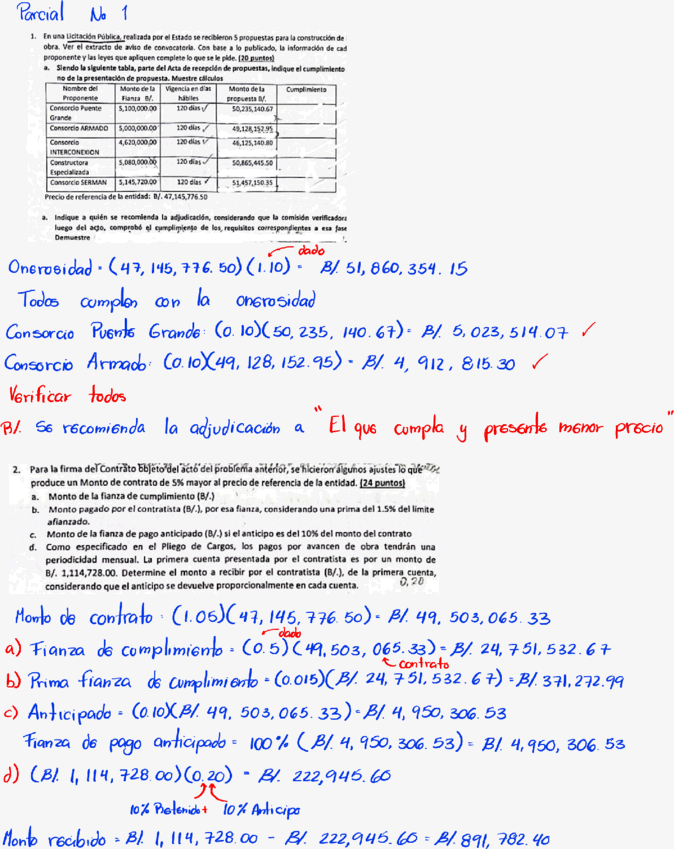 Parcial No 1
1. En una Licitación Pública, realizada por el Estado se recibieron 5 propuestas para la construcción de
obra. Ver el extracto de aviso de convocatoria. Con base a lo publicado, la información de cad
proponente y las leyes que apliquen complete lo que se le pide. (20 puntos)
a. Siendo la siguiente tabla, parte del Acta de recepción de propuestas, indique el cumplimiento
no de la presentación de propuesta. Muestre cálculos
Nombre del Proponente Monto de la Fianza B/. Vigencia en días hábiles Monto de la propuesta B/. Cumplimiento
Consorcio Puente Grande 5,100,000.00 120 días ✓ 50,235,140.67
Consorcio ARMADO 5,000,000.00 120 días ✓ 49,128,152.95
Consorcio INTERCONEXION 4,620,000.00 120 días ✓ 46,125,140.80
Constructora Especializada 5,080,000.00 120 días ✓ 50,865,445.50
Consorcio SERMAN 5,145,720.00 120 días ✓ 51,457,150.35
Precio de referencia de la entidad: B/. 47,145,776.50
a. Indique a quién se recomienda la adjudicación, considerando que la comisión verificadora
luego del acto, comprobó el cumplimiento de los requisitos correspondientes a esa fase
Demuestre
dado
Onerosidad = (47, 145, 776. 50) (1.10) = B/. 51, 860, 354. 15
Todos cumplen con la onerosidad
Consorcio Puente Grande: (0. 10)(50, 235, 140. 67) = B/. 5, 023, 514. 07 ✓
Consorcio Armado: (0. 10)(49, 128, 152. 95) = B/. 4, 912, 815. 30 ✓
Verificar todos
B/. Se recomienda la adjudicación a "El que cumpla y presente menor precio"
2. Para la firma del Contrato objeto del acto del problema anterior, se hicieron algunos ajustes lo que
produce un Monto de contrato de 5% mayor al precio de referencia de la entidad. (24 puntos)
a. Monto de la fianza de cumplimiento (B/.)
b. Monto pagado por el contratista (B/.), por esa fianza, considerando una prima del 1.5% del límite
afianzado.
c. Monto de la fianza de pago anticipado (B/.) si el anticipo es del 10% del monto del contrato
d. Como especificado en el Pliego de Cargos, los pagos por avancen de obra tendrán una
periodicidad mensual. La primera cuenta presentada por el contratista es por un monto de
B/. 1,114,728.00. Determine el monto a recibir por el contratista (B/.), de la primera cuenta,
considerando que el anticipo se devuelve proporcionalmente en cada cuenta. 0,20
Monto de contrato: (1.05)(47, 145, 776. 50) = B/. 49, 503, 065. 33
dado
a) Fianza de cumplimiento = (0.5) (49, 503, 065. 33) = B/. 24, 751, 532. 67
contrato
b) Prima fianza de cumplimiento = (0.015)(B/. 24, 751, 532. 67) = B/. 371, 272. 99
c) Anticipado = (0.10)(B/. 49, 503, 065. 33) = B/. 4, 950, 306. 53
Fianza de pago anticipado = 100% (B/. 4, 950, 306. 53) = B/. 4, 950, 306. 53
d) (B/. 1, 114, 728. 00)(0.20) = B/. 222,945. 60
10% Retenido + 10% Anticipo
Monto recibido = B/. 1, 114, 728. 00 - B/. 222, 945. 60 = B/. 891, 782. 40